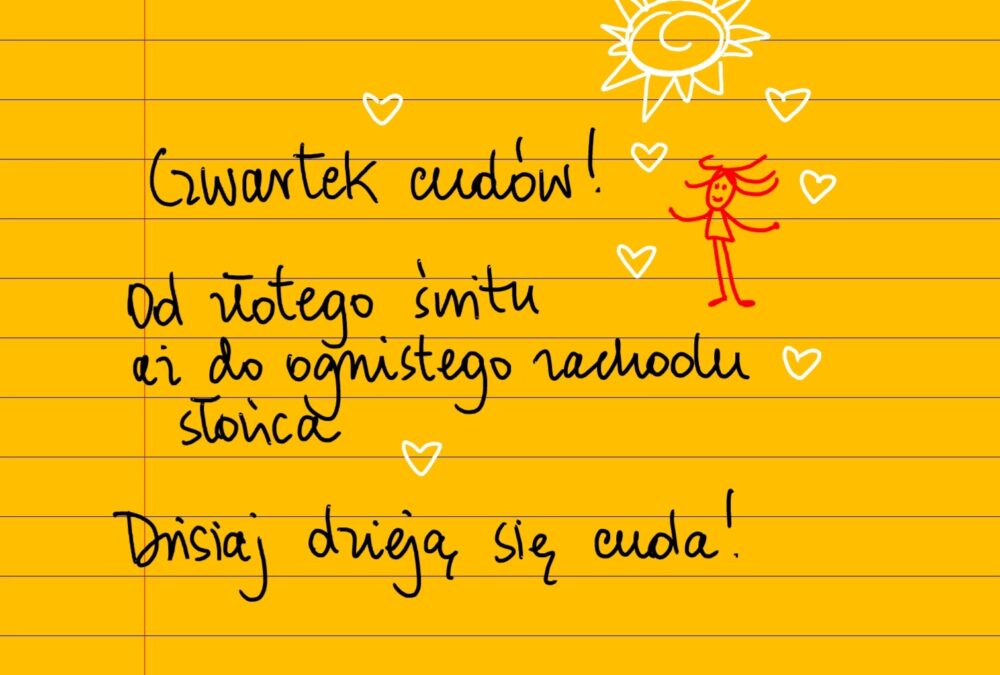 Czwartek cudów!
Od złotego świtu
aż do ognistego zachodu
słońca
Dzisiaj dzieją się cuda!